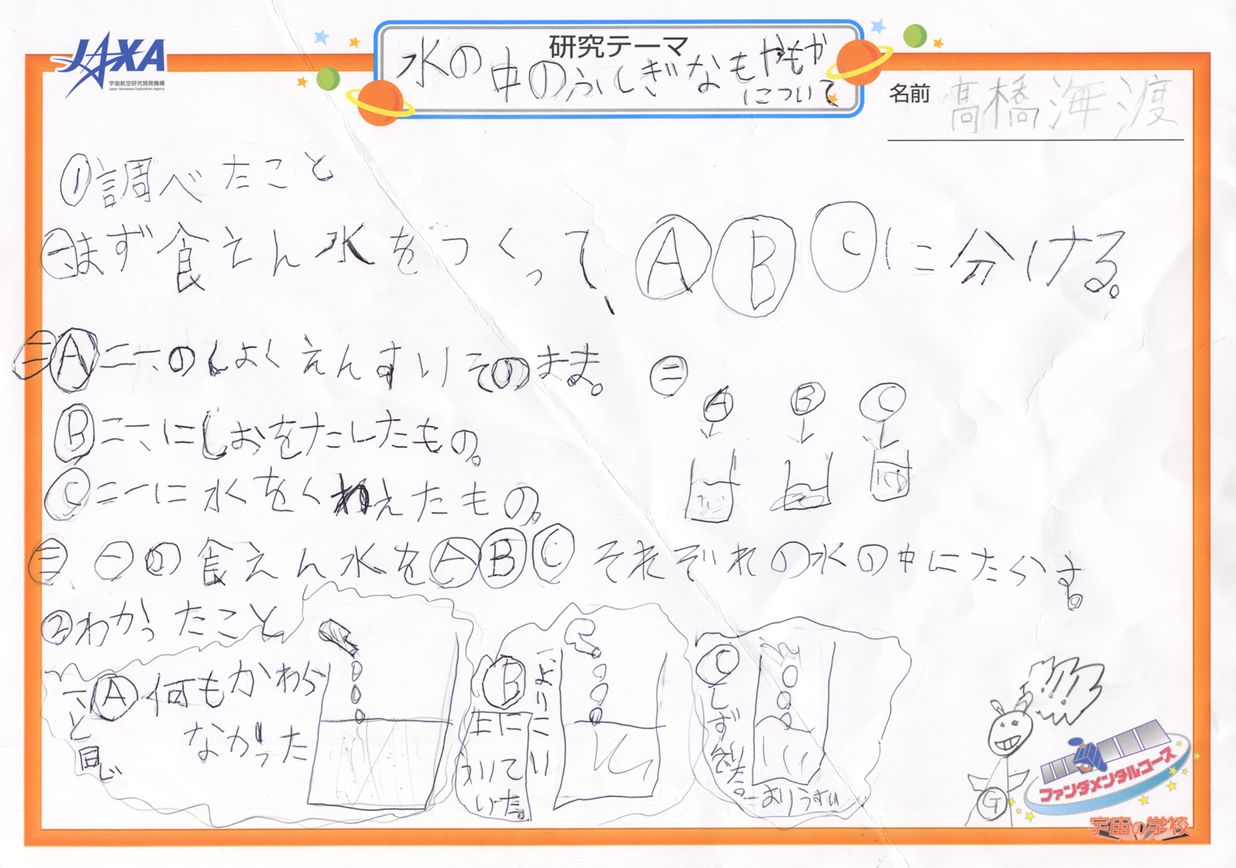 JAXA
宇宙航空研究開発機構
Japan Aerospace Exploration Agency
研究テーマ
水の中のふしぎなもやもや
について
名前 髙橋海渡
①調べたこと
㊀まず食えん水をつくって、ⒶⒷⒸに分ける。
㊁Ⓐ二一、のしょくえんすいそのまま。
Ⓑ二一、にしおをたしたもの。
Ⓒ二一に水をくわえたもの。
㊁
Ⓐ Ⓑ Ⓒ
㊂、㊀の食えん水をⒶⒷⒸそれぞれの水の中にたらす。
②わかったこと
Ⓐ何もかわら
なかった
一と同じ
Ⓑ一よりこい
上に
ういて
いた。
Ⓒしずんだ。
一よりうすい
ファンダメンタルコース
宇宙の学校